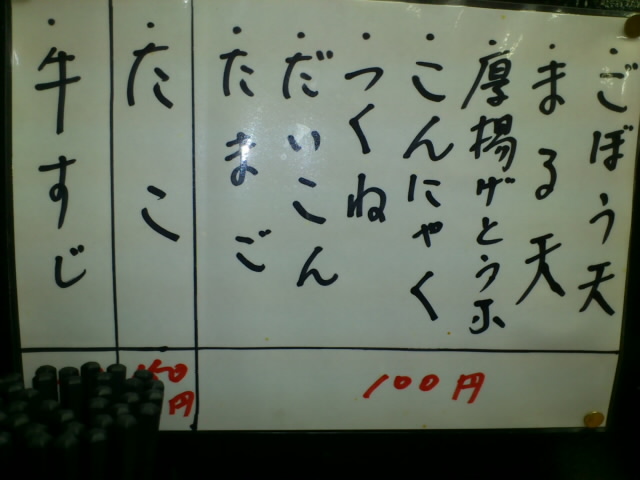 ・ごぼう天
・まる天
・厚揚げとうふ
・こんにゃく
・つくね
・だいこん
・たまご
100円
・たこ
150円
・牛すじ